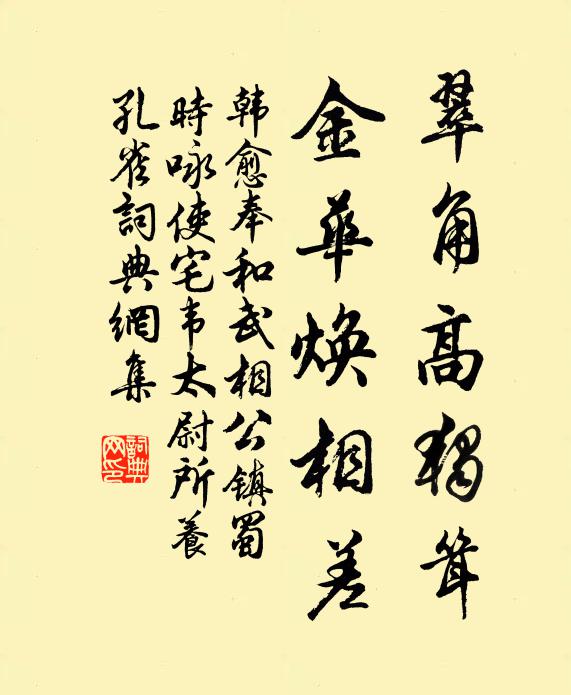 翠角高獨聳
金華煥相差
韩愈奉和武相公鎮蜀
時咏使宅韦太尉所養
孔雀詞典網集
詞典网印